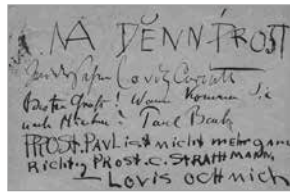 NA DĚNN-PROST
Lovis Corinth
Besten Gruß! Wann kommen Sie
nach
PROST. PAVL ist nicht mehr ganz
Richtig PROST. C. STRATHMANN
— LOVIS OCH MICH